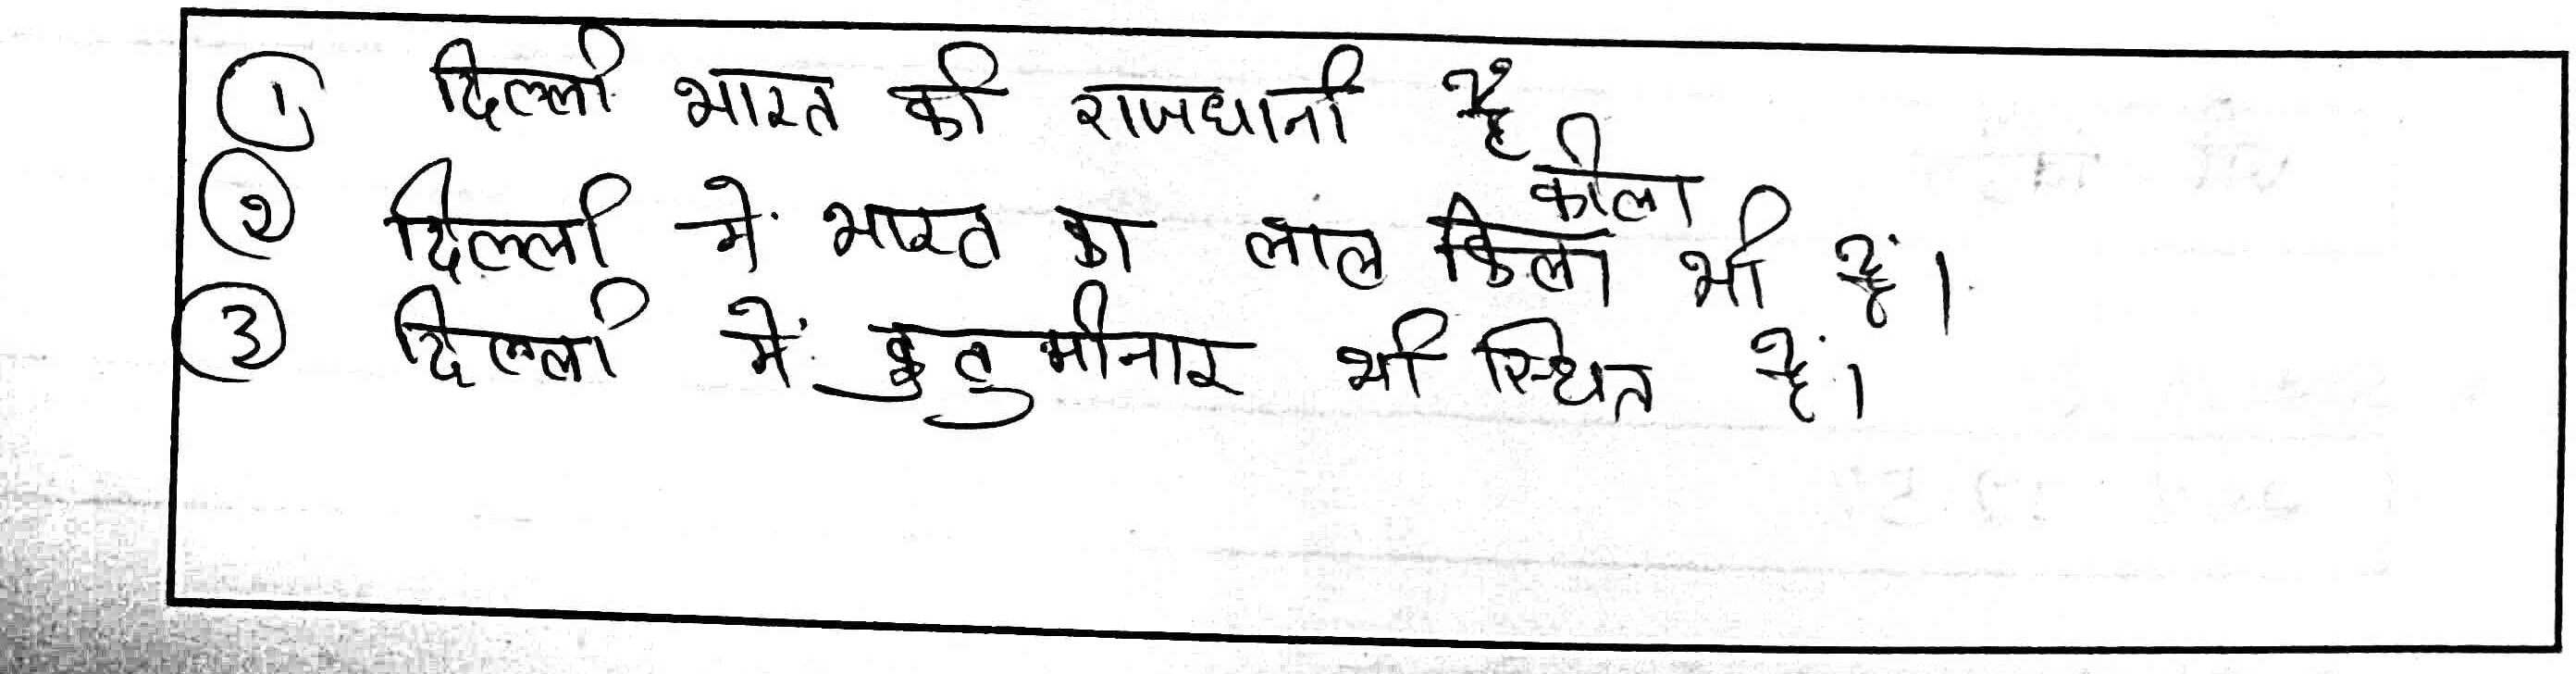 ① दिल्ली भारत की राजधानी है
कीला
② दिल्ली में भारत का लाल किला भी हैं।
③ दिल्ली में कुतुमीनार भी स्थित हैं।